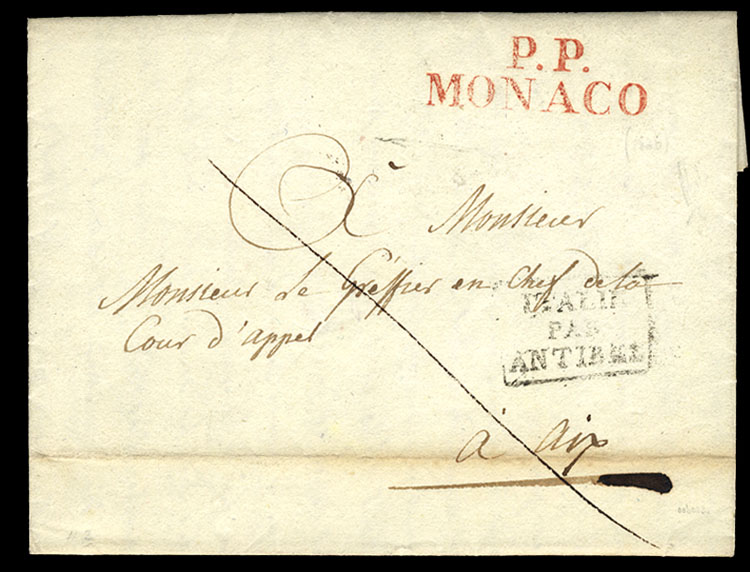 P.P.
MONACO
A Monsieur
Monsieur Le Gréffier en chef de la
Cour d'appel
ITALIE
PAR
ANTIBES
à aix